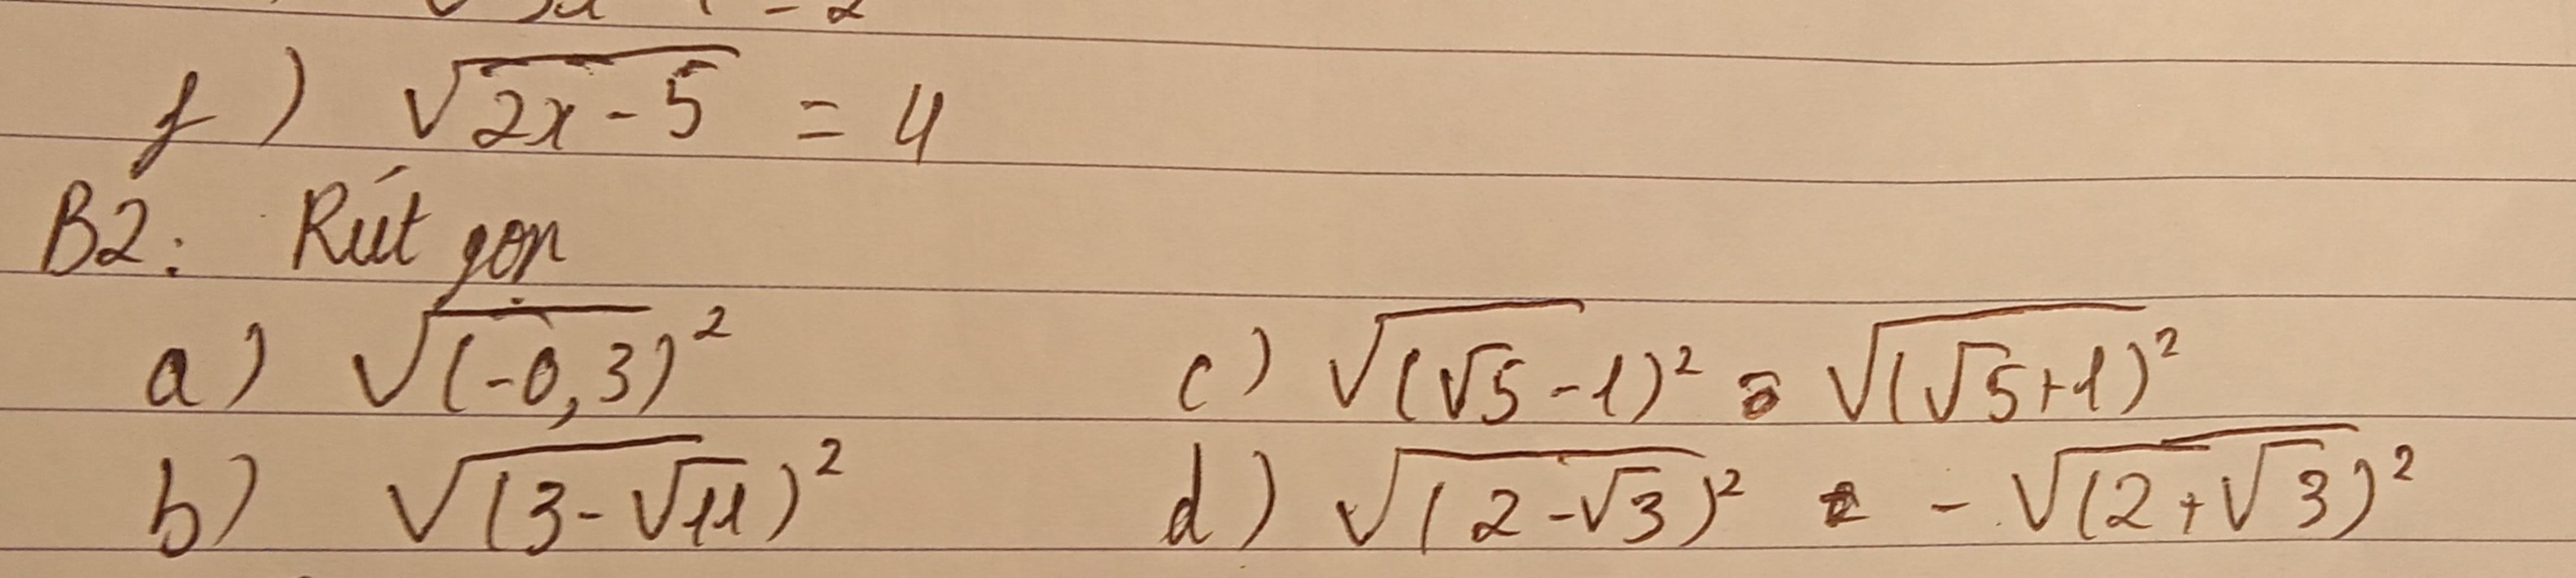 f) √(2x-5) = 4
B2: Rút gọn
a) √(-0,3)² c) √(√5-1)² √(√5+1)²
b) √(3-√11)² d) √(2-√3)² - √(2+√3)²